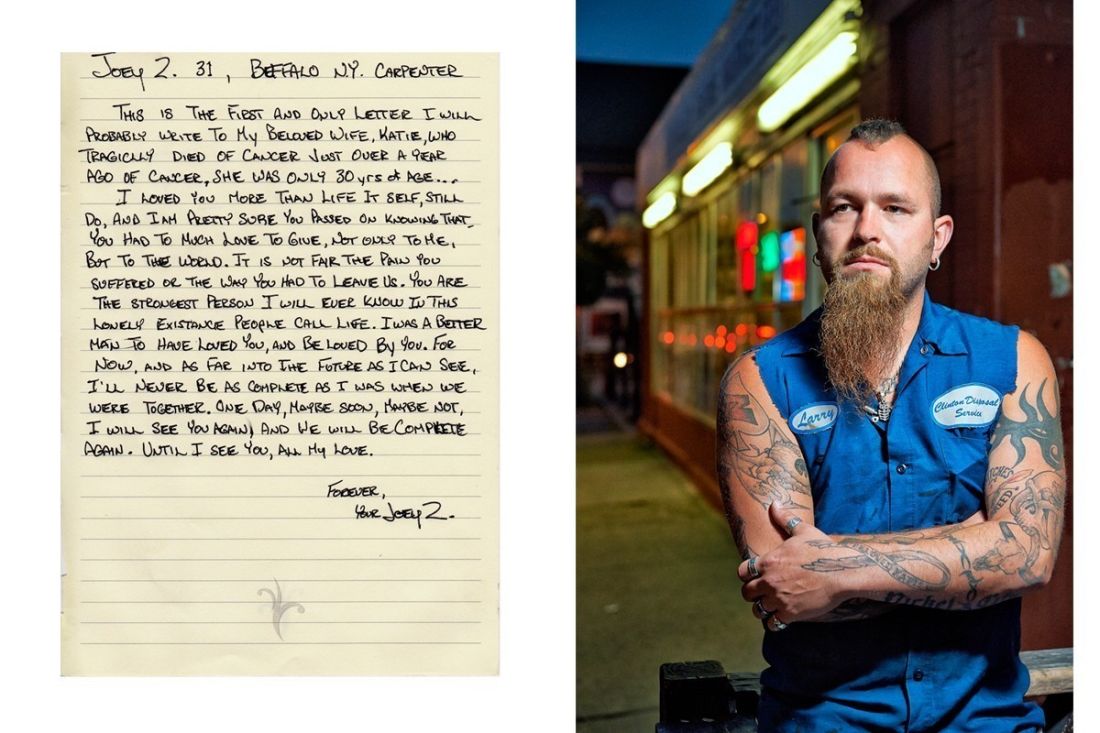 JOEY Z. 31, BUFFALO N.Y. CARPENTER
THIS IS THE FIRST AND ONLY LETTER I WILL
PROBABLY WRITE TO MY BELOVED WIFE, KATIE, WHO
TRAGICLLY DIED OF CANCER JUST OVER A YEAR
AGO OF CANCER, SHE WAS ONLY 30 yrs of AGE...
I LOVED YOU MORE THAN LIFE IT SELF, STILL
DO, AND I AM PRETTY SURE YOU PASSED ON KNOWING THAT.
YOU HAD TO MUCH LOVE TO GIVE, NOT ONLY TO ME,
BUT TO THE WORLD. IT IS NOT FAIR THE PAIN YOU
SUFFERED OR THE WAY YOU HAD TO LEAVE US. YOU ARE
THE STRONGEST PERSON I WILL EVER KNOW IN THIS
LONELY EXISTANCE PEOPLE CALL LIFE. I WAS A BETTER
MAN TO HAVE LOVED YOU, AND BE LOVED BY YOU. FOR
NOW, AND AS FAR INTO THE FUTURE AS I CAN SEE,
I'LL NEVER BE AS COMPLETE AS I WAS WHEN WE
WERE TOGETHER. ONE DAY, MAYBE SOON, MAYBE NOT,
I WILL SEE YOU AGAIN, AND WE WILL BE COMPLETE
AGAIN. UNTIL I SEE YOU, ALL MY LOVE.
FOREVER,
YOUR JOEY Z.
Larry
Clinton Disposal
Service